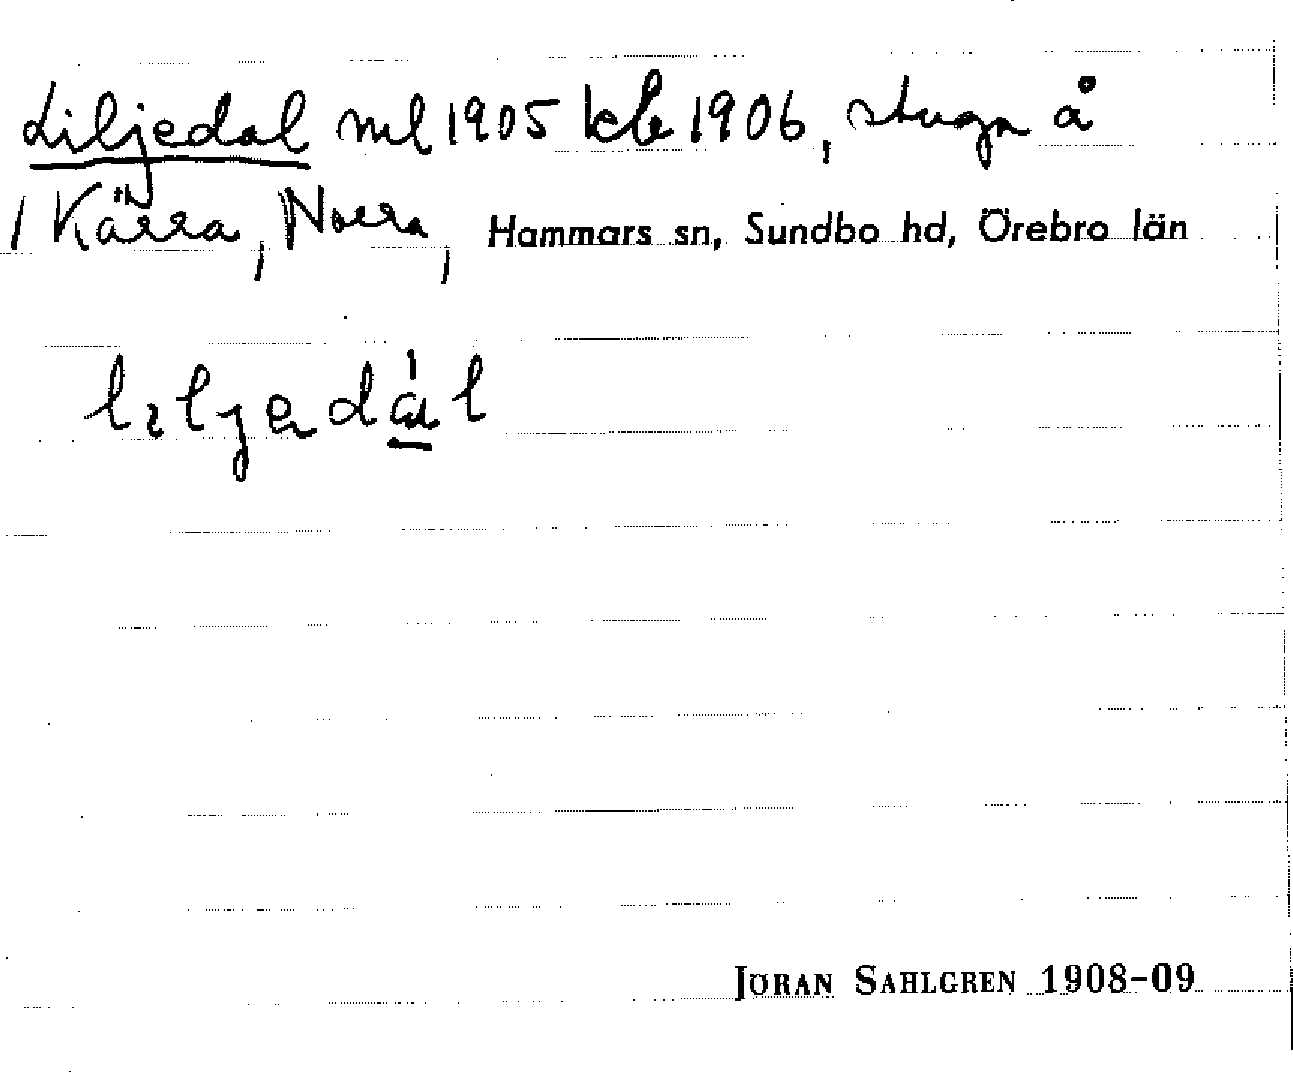 Liljedal ml 1905 klb 1906, stuga å
/ Kärra, Norra, Hammars sn, Sundbo hd, Örebro län
liljedál
JÖRAN SAHLGREN 1908-09